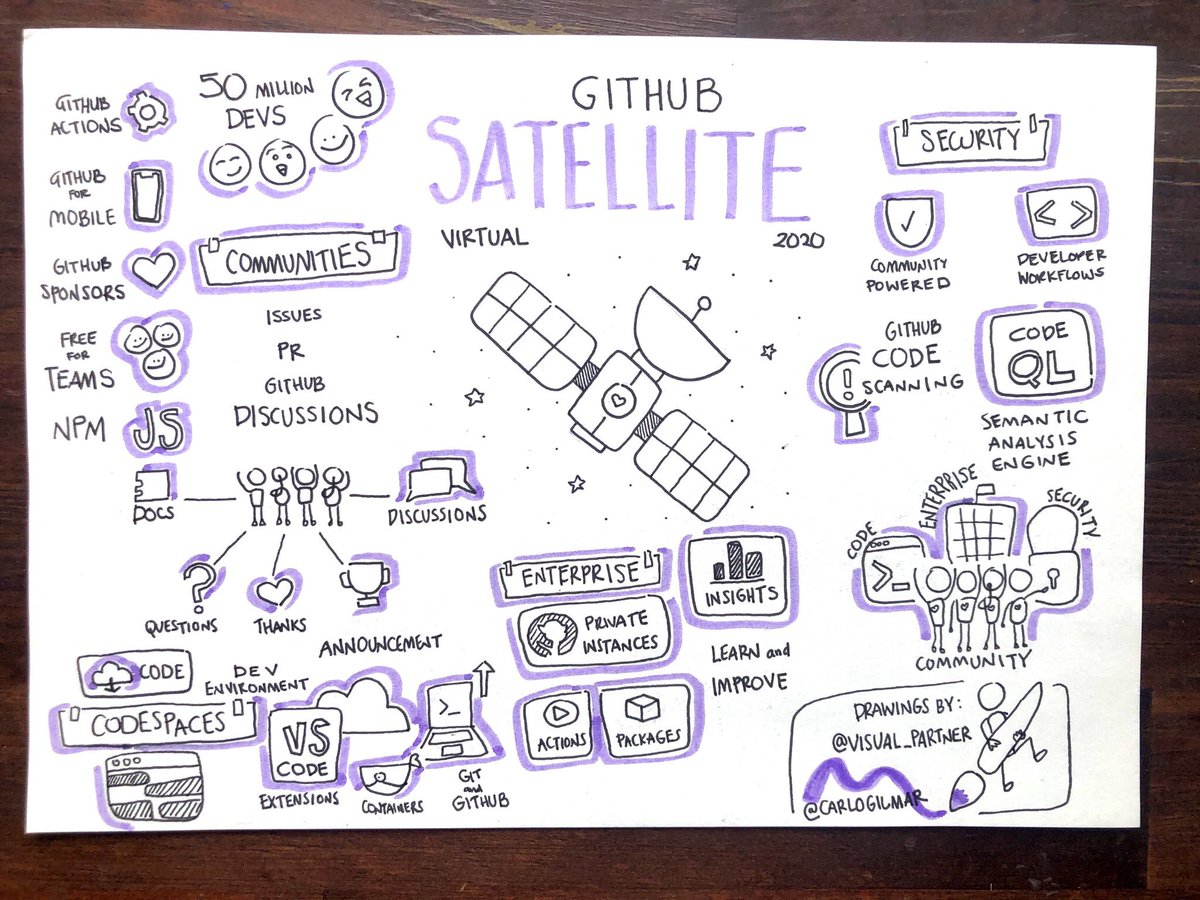 GITHUB
SATELLITE
VIRTUAL
2020
GITHUB
ACTIONS
GITHUB
FOR
MOBILE
GITHUB
SPONSORS
FREE
FOR
TEAMS
NPM
JS
50 MILLION
DEVS
COMMUNITIES
ISSUES
PR
GITHUB
DISCUSSIONS
DOCS
DISCUSSIONS
?
QUESTIONS
THANKS
ANNOUNCEMENT
CODE
DEV
ENVIRONMENT
CODESPACES
VS
CODE
EXTENSIONS
CONTAINERS
>_
GIT
and
GITHUB
ENTERPRISE
PRIVATE
INSTANCES
ACTIONS
PACKAGES
INSIGHTS
LEARN and
IMPROVE
SECURITY
COMMUNITY
POWERED
< >
DEVELOPER
WORKFLOWS
!
GITHUB
CODE
SCANNING
CODE
QL
SEMANTIC
ANALYSIS
ENGINE
CODE
>_
ENTERPRISE
SECURITY
COMMUNITY
DRAWINGS BY:
@VISUAL_PARTNER
@CARLOGILMAR